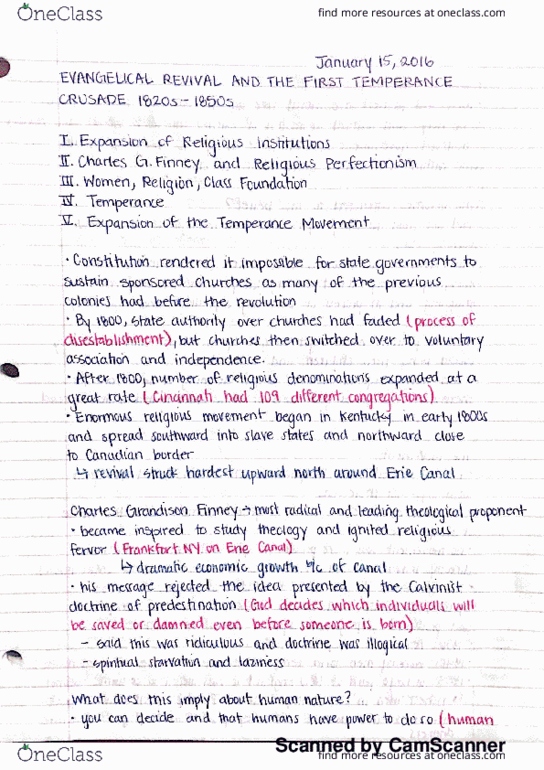 OneClass
find more resources at oneclass.com
January 15, 2016
EVANGELICAL REVIVAL AND THE FIRST TEMPERANCE
CRUSADE 1820s - 1850s
I. Expansion of Religious Institutions
II. Charles G. Finney and Religious Perfectionism
III. Women, Religion, Class Foundation
IV. Temperance
V. Expansion of the Temperance Movement
· Constitution rendered it impossible for state governments to
sustain sponsored churches as many of the previous
colonies had before the revolution
· By 1800, state authority over churches had faded (process of
disestablishment), but churches then switched over to voluntary
association and independence.
· After 1800, number of religious denominations expanded at a
great rate (Cincinnati had 109 different congregations).
· Enormous religious movement began in Kentucky in early 1800s
and spread southward into slave states and northward close
to Canadian border
↳ revival struck hardest upward north around Erie Canal
Charles Grandison Finney → most radical and leading theological proponent
· became inspired to study theology and ignited religious
fervor (Frankfort NY on Erie Canal)
↳ dramatic economic growth b/c of canal
· his message rejected the idea presented by the Calvinist
doctrine of predestination (God decides which individuals will
be saved or damned even before someone is born)
- said this was ridiculous and doctrine was illogical
- spiritual starvation and laziness
What does this imply about human nature?
· you can decide and that humans have power to do so (human
Scanned by CamScanner
OneClass
find more resources at oneclass.com